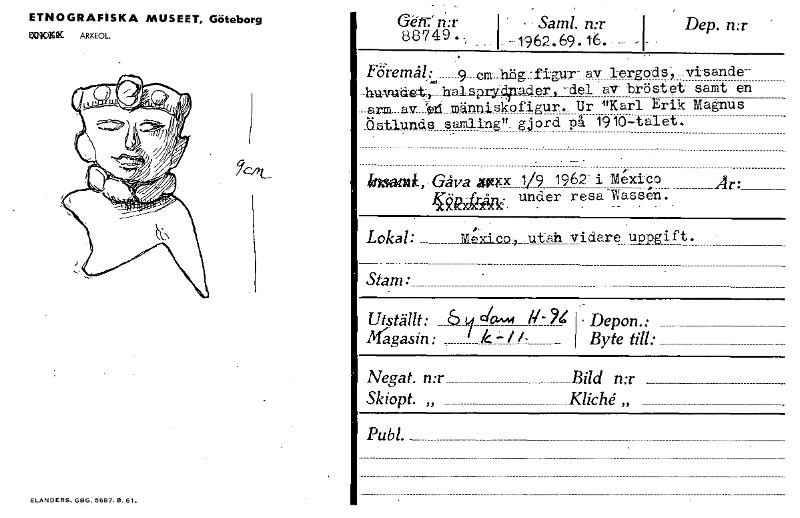 ETNOGRAFISKA MUSEET, Göteborg
ARKEOL.
9cm
ELANDERS, GBG. 5687. 8. 61.
Gen. n:r
88749.
Saml. n:r
1962.69.16.
Dep. n:r
Föremål: 9 cm hög figur av lergods, visande
huvudet, halsprydnader, del av bröstet samt en
arm av en människofigur. Ur "Karl Erik Magnus
Östlunds samling" gjord på 1910-talet.
Insaml., Gåva xxxx 1/9 1962 i México År:
Köp från: under resa Wassén.
Lokal: México, utan vidare uppgift.
Stam:
Utställt: Sydam H-96 Depon.:
Magasin: K-11. Byte till:
Negat. n:r Bild n:r
Skiopt. „ Kliché „
Publ.